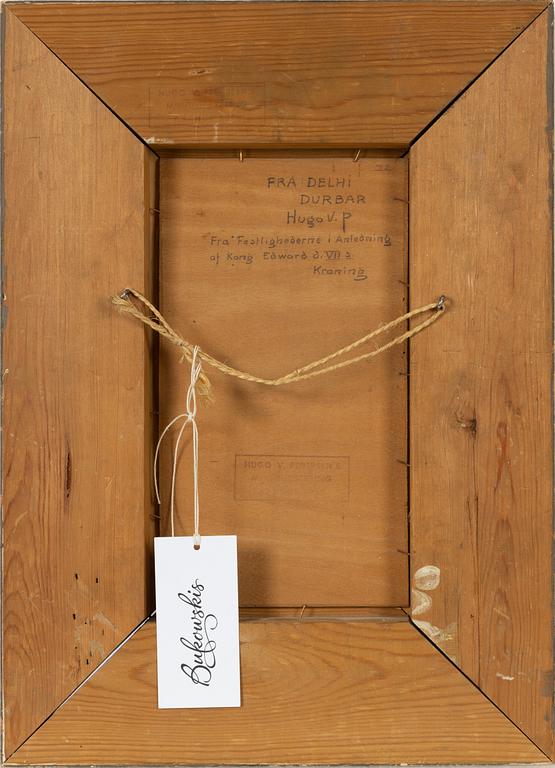 HUGO V.
FRA DELHI
DURBAR
Hugo V. P
Fra Festlighederne i Anledning
af Kong Edward d. VII s
Kroning
HUGO V. PEDERSEN'S
Bukowskis